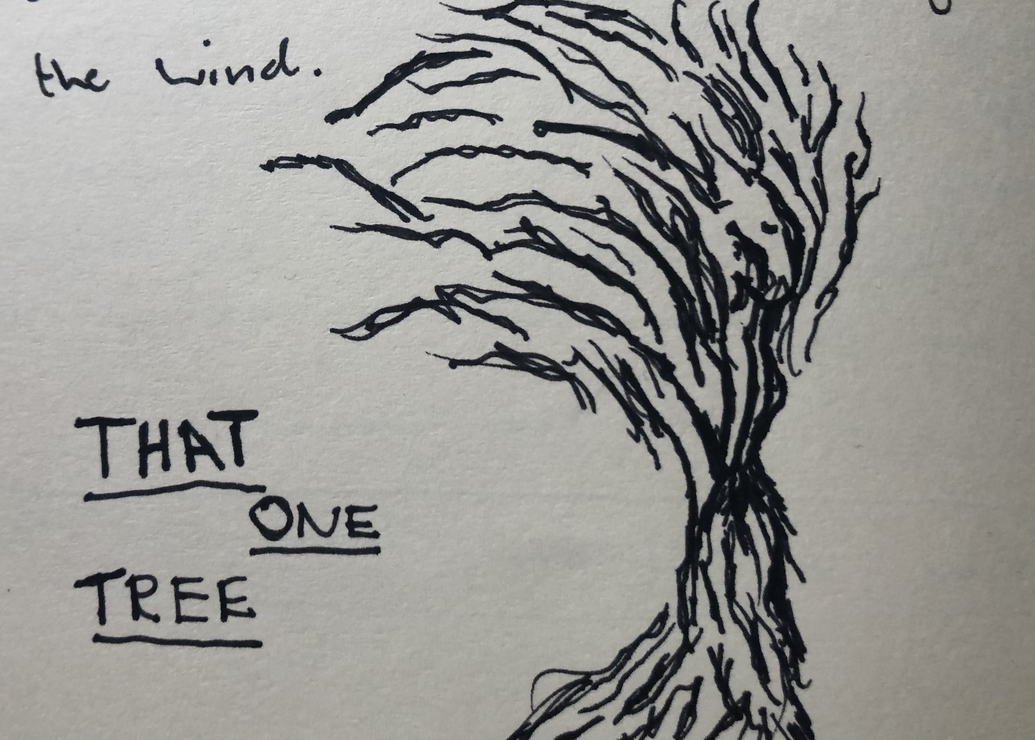 the wind.
THAT
ONE
TREE